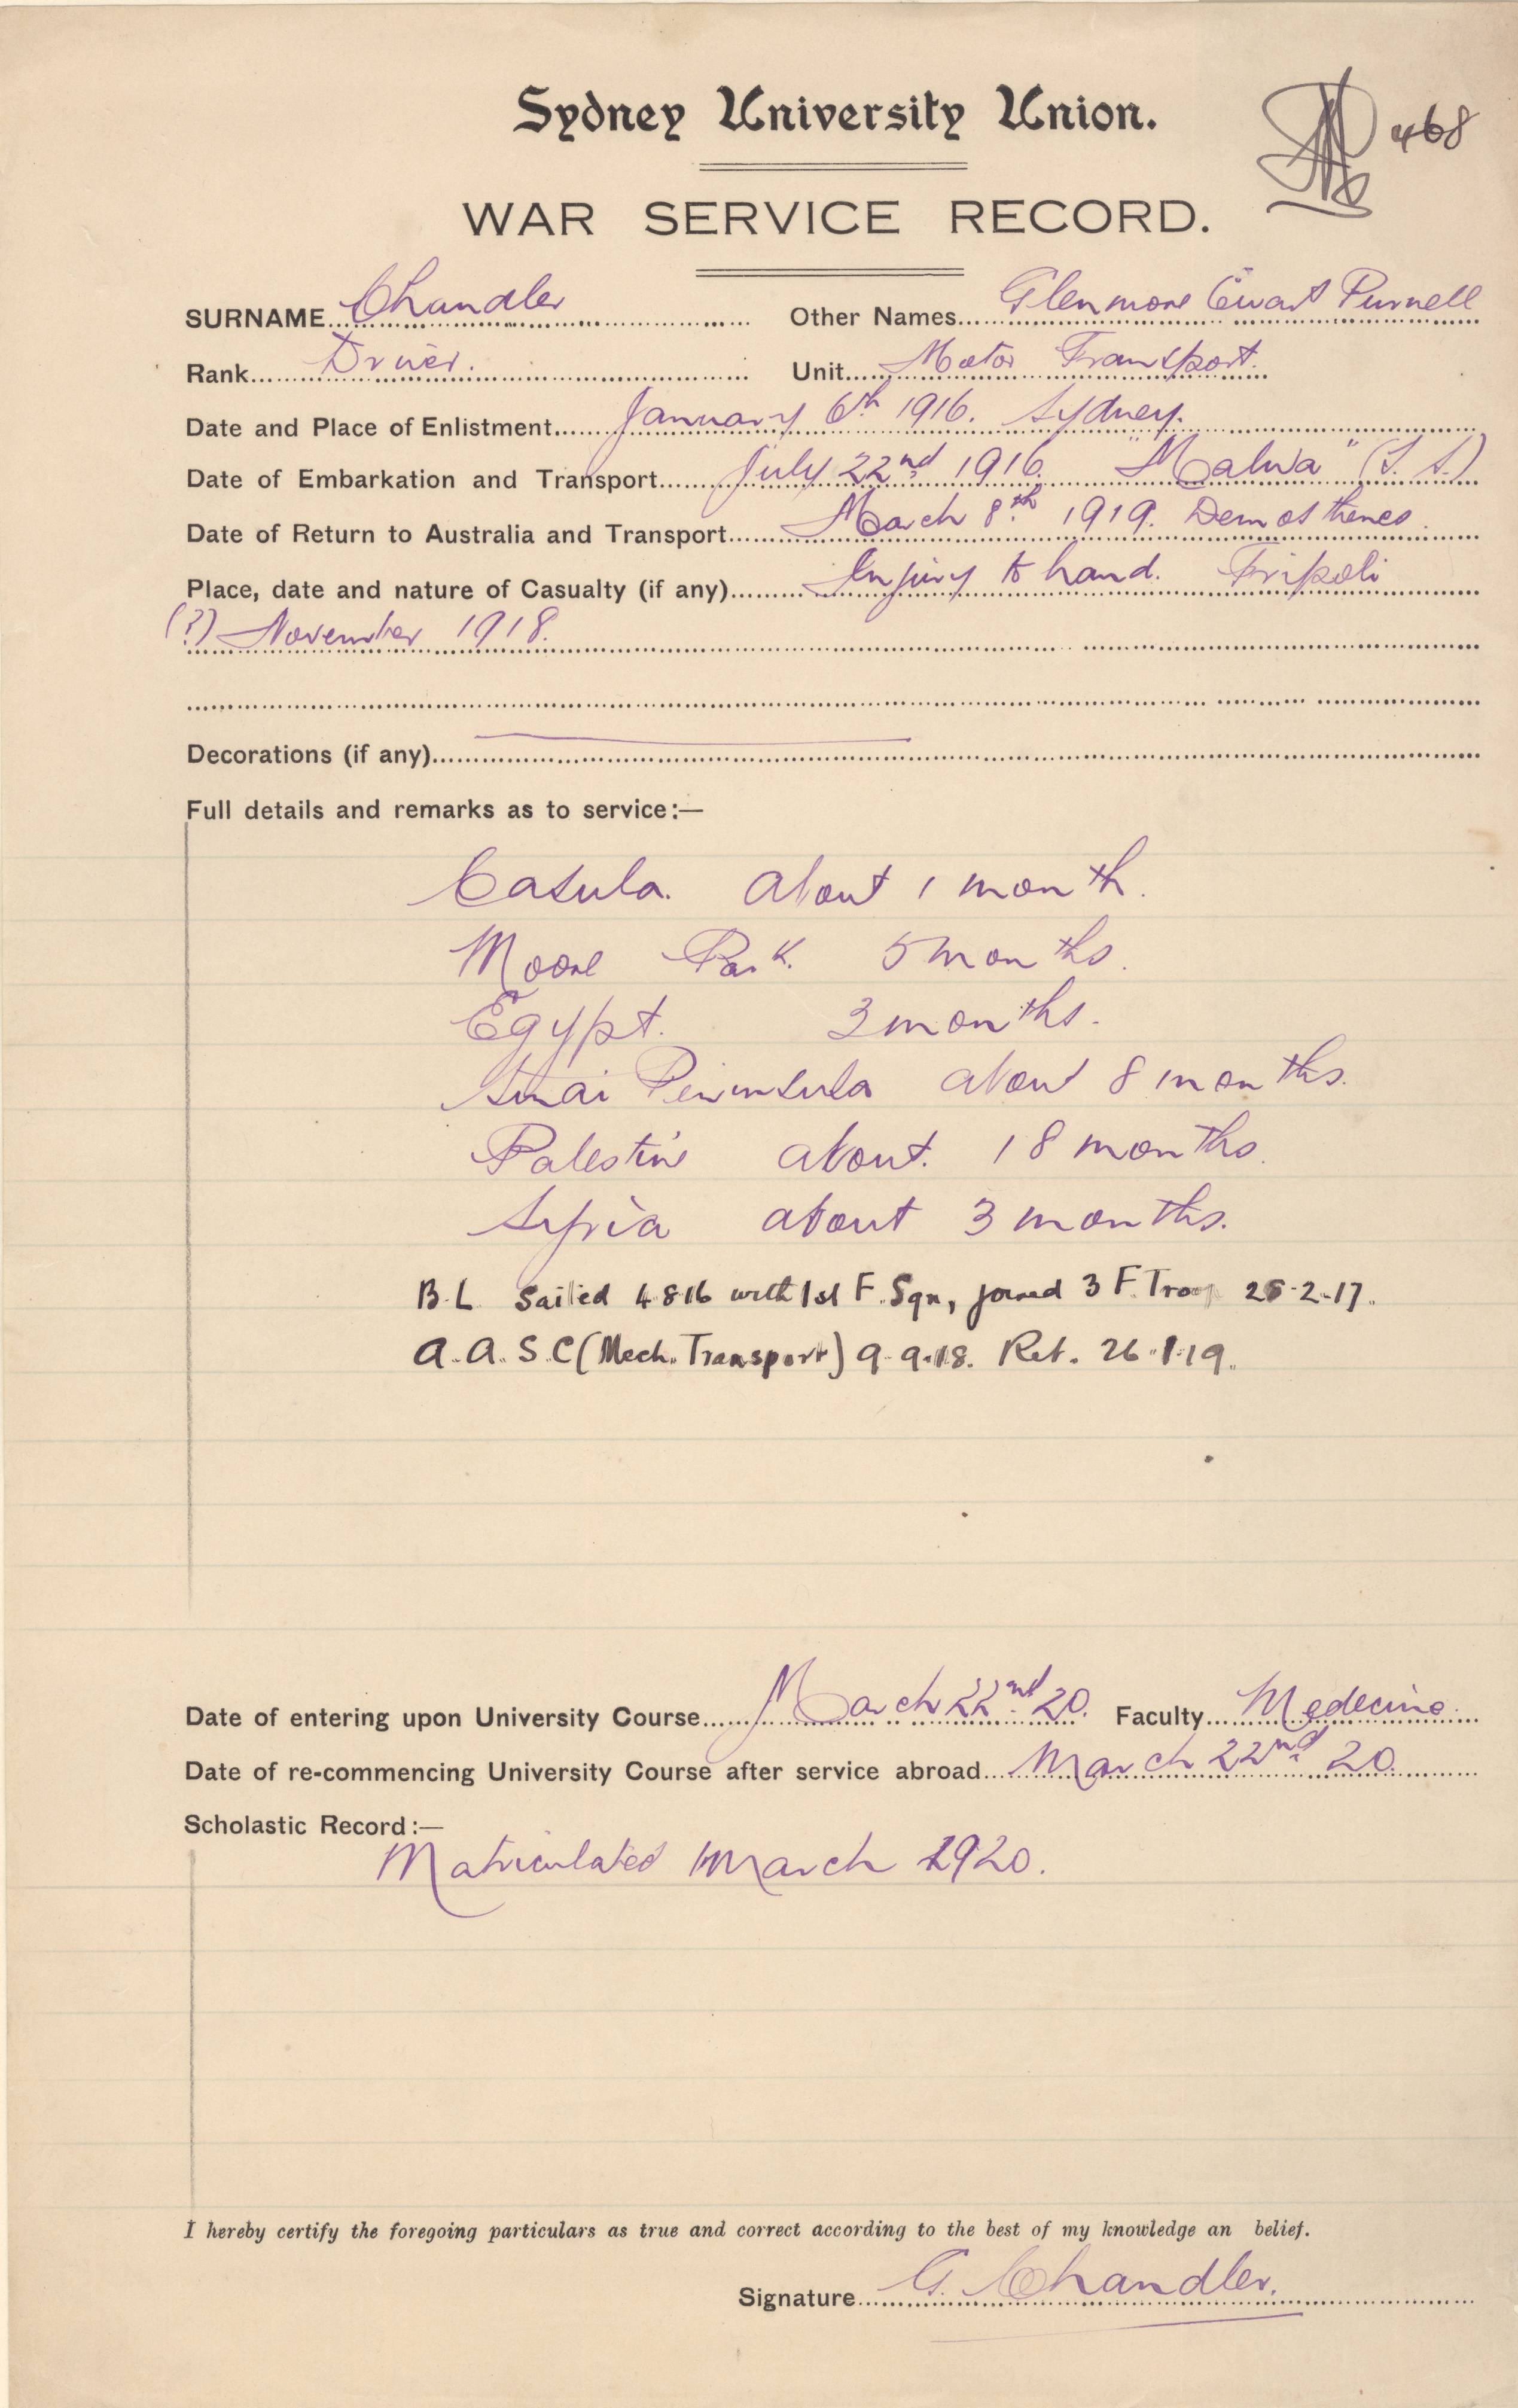 Sydney University Union.
468
WAR SERVICE RECORD.
SURNAME Chandler Other Names Glenmore Ewart Purnell
Rank Driver. Unit Motor Transport.
Date and Place of Enlistment January 6th 1916. Sydney.
Date of Embarkation and Transport July 22nd 1916. "Malwa" (S.S.)
Date of Return to Australia and Transport March 8th 1919. Demosthenes.
Place, date and nature of Casualty (if any) Injury to hand. Tripoli
(?) November 1918.
Decorations (if any)
Full details and remarks as to service:—
Casula. About 1 month.
Moore Park. 5 months.
Egypt. 3 months.
Sinai Peninsula about 8 months.
Palestine about. 18 months.
Syria about 3 months.
B.L. Sailed 4 8 16 with 1st F. Sqn, joined 3 F. Troop 25-2-17.
A.A.S.C (Mech. Transport) 9-9-18. Ret. 26.1.19.
Date of entering upon University Course March 22nd. 20. Faculty Medecine.
Date of re-commencing University Course after service abroad March 22nd 20.
Scholastic Record:—
Matriculated March 1920.
I hereby certify the foregoing particulars as true and correct according to the best of my knowledge an belief.
Signature G. Chandler.